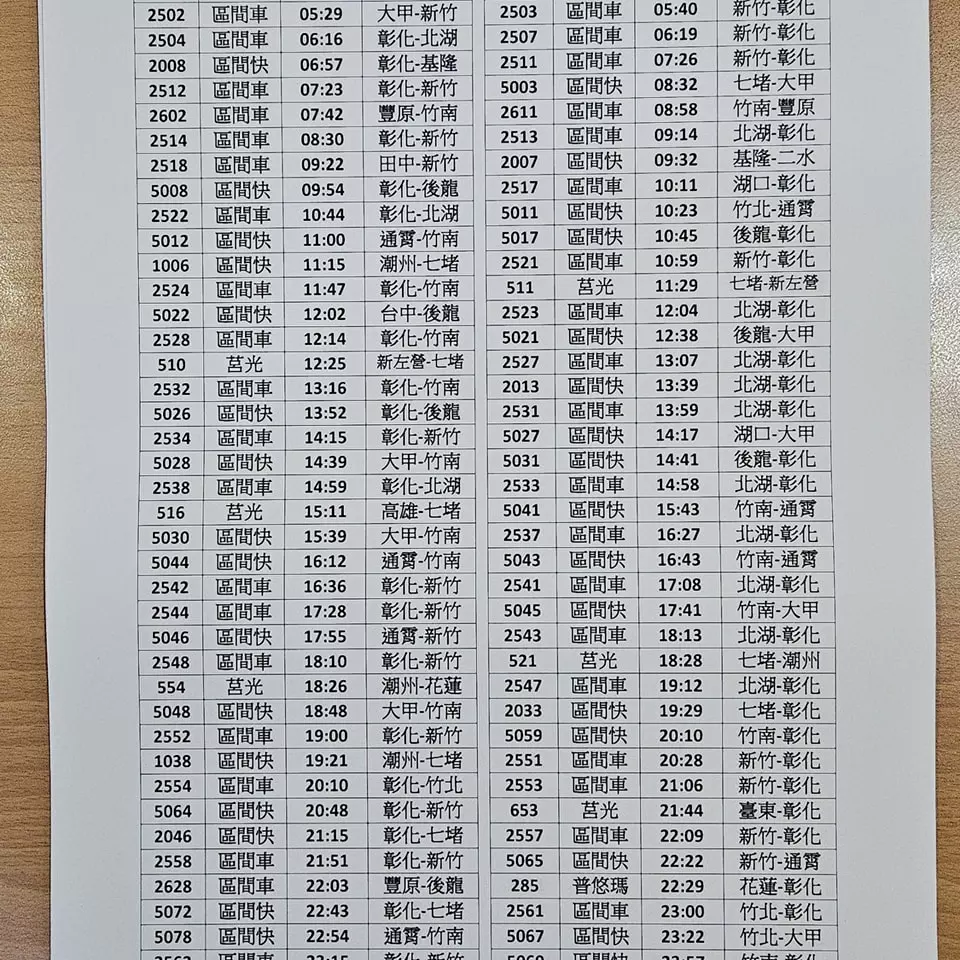 2502 區間車 05:29 大甲-新竹 2503 區間車 05:40 新竹-彰化
2504 區間車 06:16 彰化-北湖 2507 區間車 06:19 新竹-彰化
2008 區間快 06:57 彰化-基隆 2511 區間車 07:26 新竹-彰化
2512 區間車 07:23 彰化-新竹 5003 區間快 08:32 七堵-大甲
2602 區間車 07:42 豐原-竹南 2611 區間車 08:58 竹南-豐原
2514 區間車 08:30 彰化-新竹 2513 區間車 09:14 北湖-彰化
2518 區間車 09:22 田中-新竹 2007 區間快 09:32 基隆-二水
5008 區間快 09:54 彰化-後龍 2517 區間車 10:11 湖口-彰化
2522 區間車 10:44 彰化-北湖 5011 區間快 10:23 竹北-通霄
5012 區間快 11:00 通霄-竹南 5017 區間快 10:45 後龍-彰化
1006 區間快 11:15 潮州-七堵 2521 區間車 10:59 新竹-彰化
2524 區間車 11:47 彰化-竹南 511 莒光 11:29 七堵-新左營
5022 區間快 12:02 台中-後龍 2523 區間車 12:04 北湖-彰化
2528 區間車 12:14 彰化-竹南 5021 區間快 12:38 後龍-大甲
510 莒光 12:25 新左營-七堵 2527 區間車 13:07 北湖-彰化
2532 區間車 13:16 彰化-竹南 2013 區間快 13:39 北湖-彰化
5026 區間快 13:52 彰化-後龍 2531 區間車 13:59 北湖-彰化
2534 區間車 14:15 彰化-新竹 5027 區間快 14:17 湖口-大甲
5028 區間快 14:39 大甲-竹南 5031 區間快 14:41 後龍-彰化
2538 區間車 14:59 彰化-北湖 2533 區間車 14:58 北湖-彰化
516 莒光 15:11 高雄-七堵 5041 區間快 15:43 竹南-通霄
5030 區間快 15:39 大甲-竹南 2537 區間車 16:27 北湖-彰化
5044 區間快 16:12 通霄-竹南 5043 區間快 16:43 竹南-通霄
2542 區間車 16:36 彰化-新竹 2541 區間車 17:08 北湖-彰化
2544 區間車 17:28 彰化-新竹 5045 區間快 17:41 竹南-大甲
5046 區間快 17:55 通霄-新竹 2543 區間車 18:13 北湖-彰化
2548 區間車 18:10 彰化-新竹 521 莒光 18:28 七堵-潮州
554 莒光 18:26 潮州-花蓮 2547 區間車 19:12 北湖-彰化
5048 區間快 18:48 大甲-竹南 2033 區間快 19:29 七堵-彰化
2552 區間車 19:00 彰化-新竹 5059 區間快 20:10 竹南-彰化
1038 區間快 19:21 潮州-七堵 2551 區間車 20:28 新竹-彰化
2554 區間車 20:10 彰化-竹北 2553 區間車 21:06 新竹-彰化
5064 區間快 20:48 彰化-新竹 653 莒光 21:44 臺東-彰化
2046 區間快 21:15 彰化-七堵 2557 區間車 22:09 新竹-彰化
2558 區間車 21:51 彰化-新竹 5065 區間快 22:22 新竹-通霄
2628 區間車 22:03 豐原-後龍 285 普悠瑪 22:29 花蓮-彰化
5072 區間快 22:43 彰化-七堵 2561 區間車 23:00 竹北-彰化
5078 區間快 22:54 通霄-竹南 5067 區間快 23:22 竹北-大甲